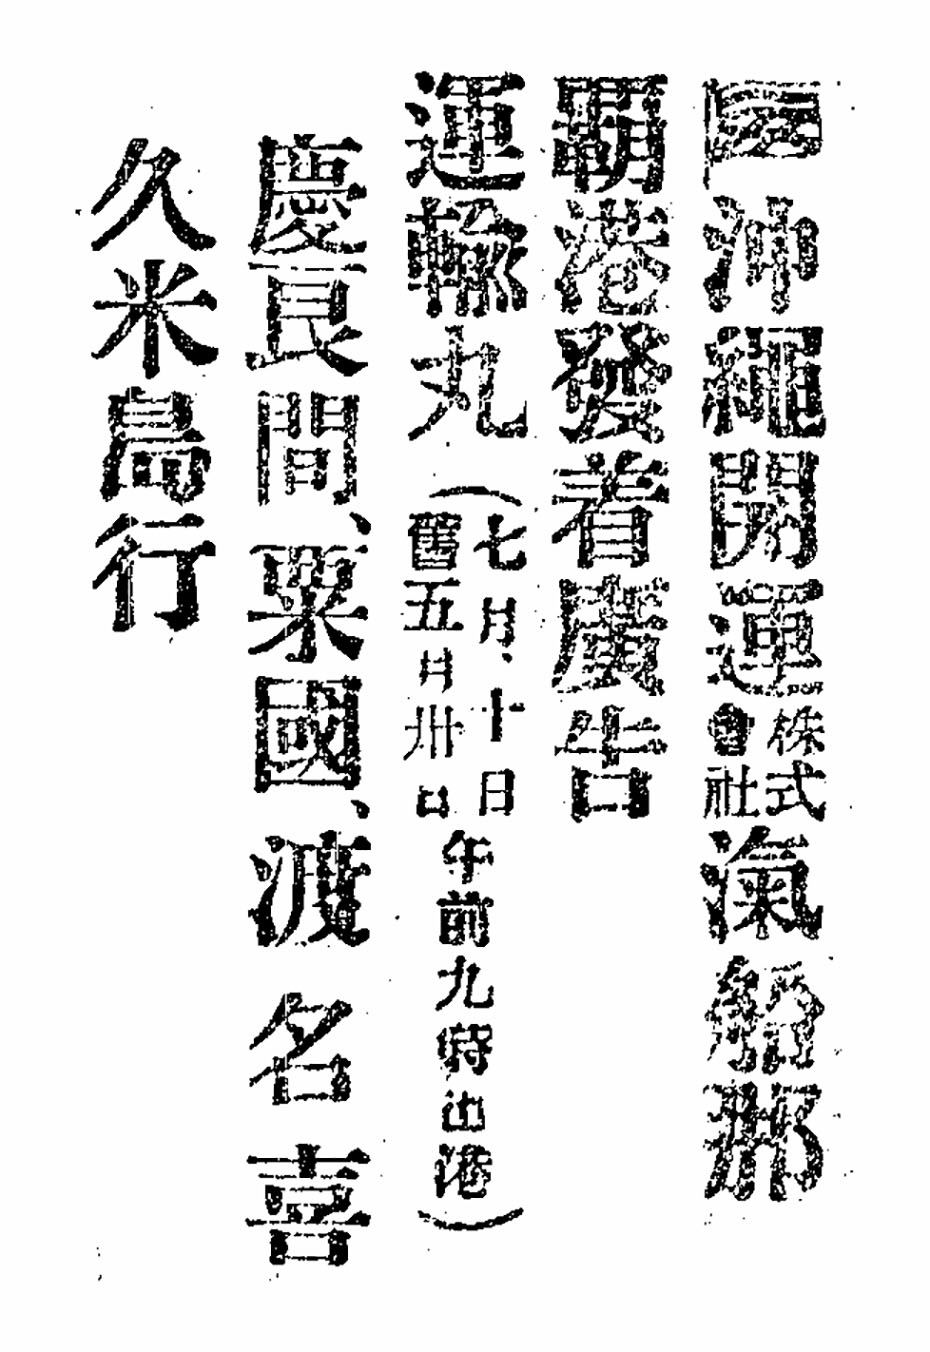 沖繩開運株式會社滊船那
覇港發着廣告
運輸丸(七月十日舊五月卅日午前九時出港)
慶良間、粟國、渡名喜
久米島行